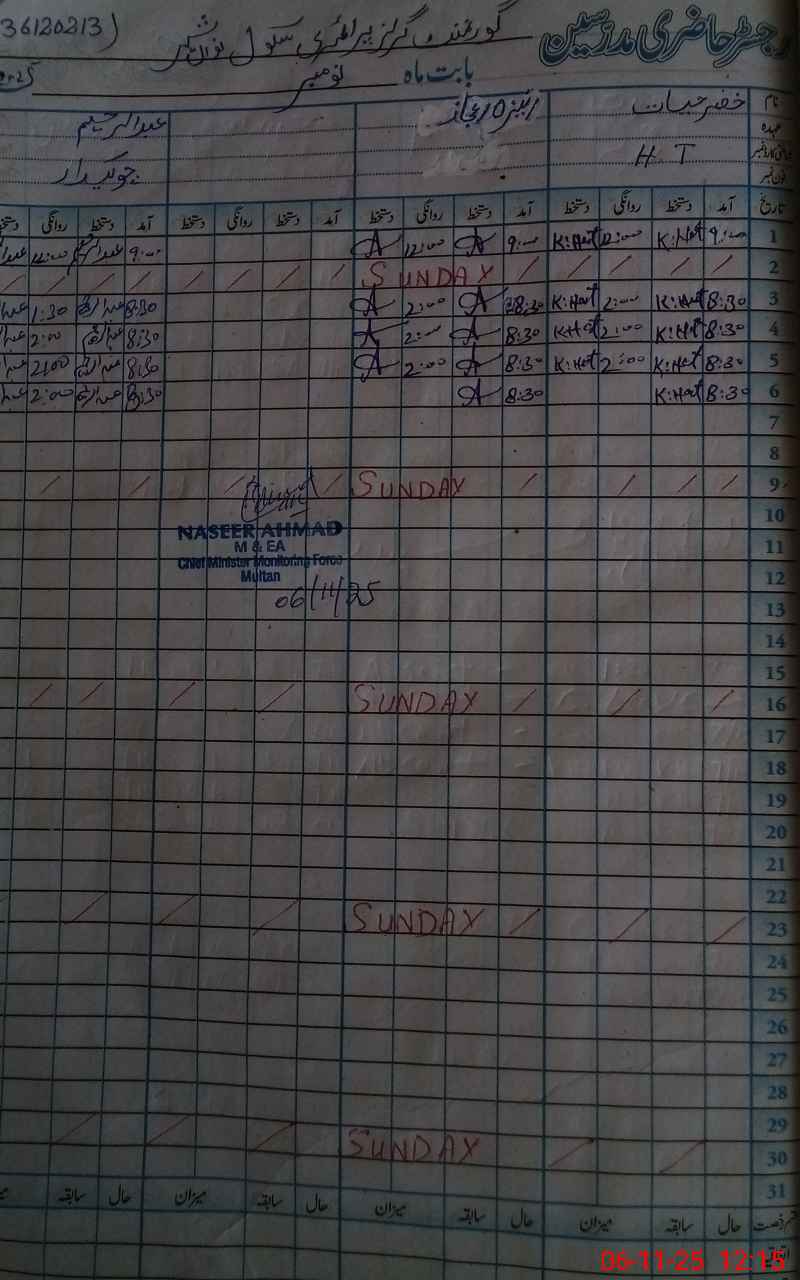 رجسٹر حاضری مدرسین گورنمنٹ گرلز پرائمری سکول نواں شہر (36120213
بابت ماہ نومبر
نام خضر حیات عبدالرحیم
عہدہ
H T چوکیدار
تاریخ آمد دستخط روانگی دستخط آمد دستخط روانگی دستخط آمد دستخط روانگی دستخط آمد دستخط روانگی
1 9:00 K:Hat 12:00 K:Hat 9:00 A 12:00 A 9:00 12:00
2 SUNDAY
3 8:30 K:Hat 2:00 K:Hat 8:30 A 2:00 A 8:30 1:30
4 8:30 K:Hat 2:00 K:Hat 8:30 A 2:00 A 8:30 2:00
5 8:30 K:Hat 2:00 K:Hat 8:30 A 2:00 A 8:30 2:00
6 8:30 K:Hat 8:30 A 8:30 2:00
7
8
9 SUNDAY
10
NASEER AHMAD
11
M & EA
Chief Minister Monitoring Force
12
Multan
06/11/25
13
14
15
16 SUNDAY
17
18
19
20
21
22
23 SUNDAY
24
25
26
27
28
29
30 SUNDAY
31
حال سابقہ میزان حال سابقہ میزان حال سابقہ میزان حال سابقہ
06-11-25 12:15